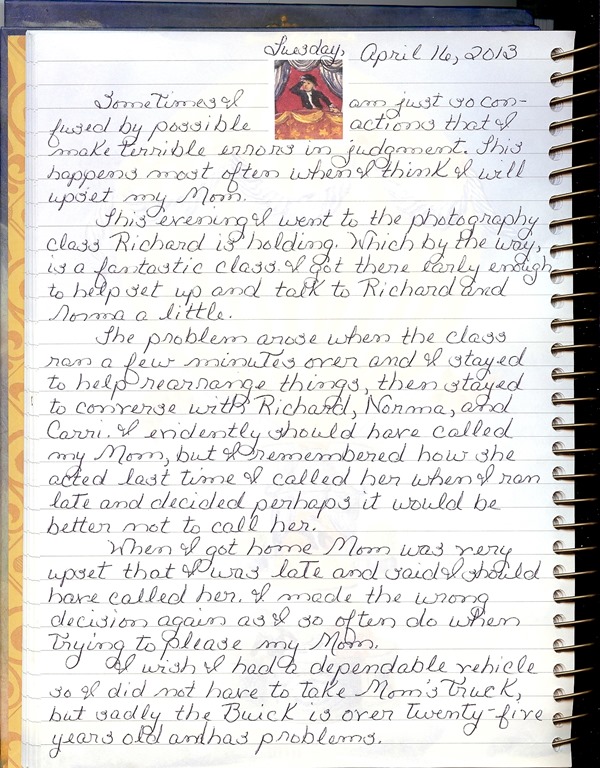 Tuesday, April 16, 2013
Sometimes I am just so con-
fused by possible actions that I
make terrible errors in judgment. This
happens most often when I think I will
upset my Mom.
This evening I went to the photography
class Richard is holding. Which by the way,
is a fantastic class. I got there early enough
to help set up and talk to Richard and
Norma a little.
The problem arose when the class
ran a few minutes over and I stayed
to help rearrange things, then stayed
to converse with Richard, Norma, and
Carri. I evidently should have called
my Mom, but I remembered how she
acted last time I called her when I ran
late and decided perhaps it would be
better not to call her.
When I got home Mom was very
upset that I was late and said I should
have called her. I made the wrong
decision again as I so often do when
trying to please my Mom.
I wish I had a dependable vehicle
so I did not have to take Mom's Truck,
but sadly the Buick is over twenty-five
years old an has problems.